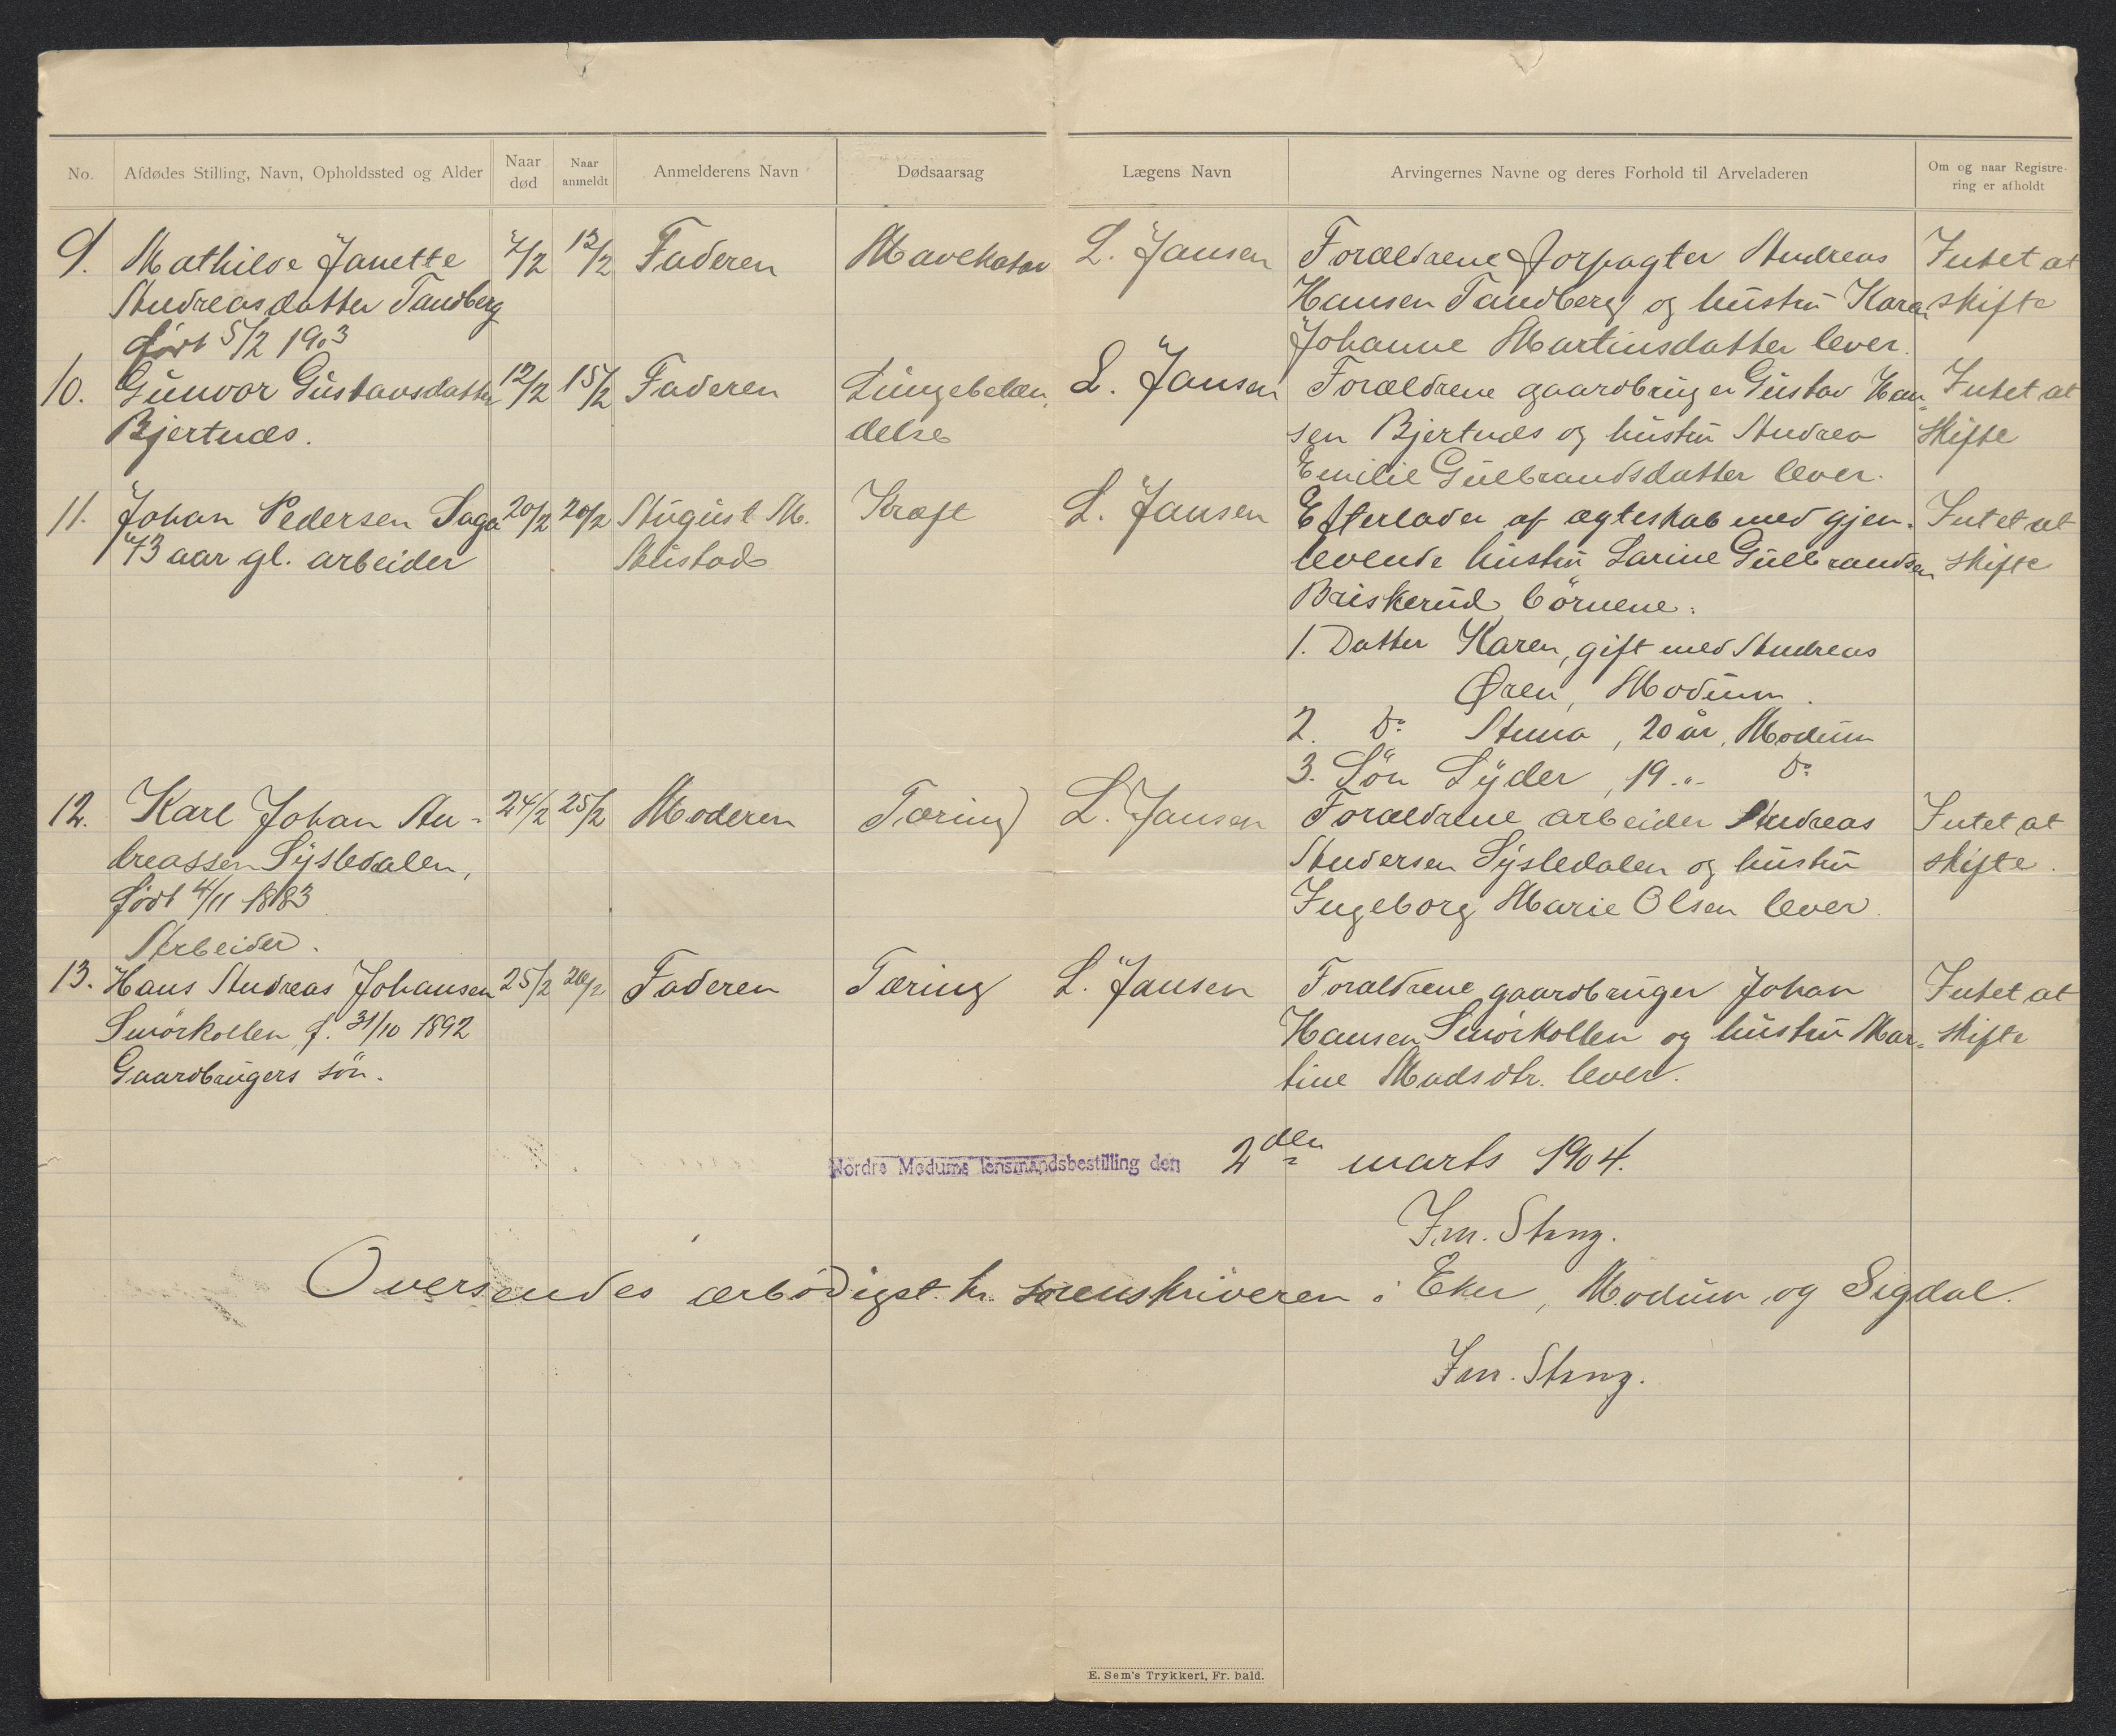 No.
Afdødes Stilling, Navn, Opholdssted og Alder
Naar død
Naar anmeldt
Anmelderens Navn
Dødsaarsag
Lægens Navn
Arvingernes Navne og deres Forhold til Arveladeren
Om og naar Registrering er afholdt
9. Mathilde Janette 7/2 12/2 Faderen Mavekatar L. Jansen Forældrene forpagter Andreas Intet at
Andreasdatter Tandberg Hansen Tandberg og hustru Karen skifte
født 5/2 1903 Johanne Martinsdatter lever.
10. Gunvor Gustavsdatter 12/2 15/2 Faderen Lungebetæn, L. Jansen Forældrene gaardbruger Gustav Han- Intet at
Bjertnæs. delse sen Bjertnæs og hustru Andrea skifte
Emilie Gulbrandsdatter lever.
11. Johan Pedersen Saga 20/2 20/2 August M. Kræft L. Jansen Efterlader af ægteskab med gjen- Intet at
73 aar gl. arbeider levende hustru Larine Gulbrandsen skifte
Briskerud børnene:
1. Datter Karen, gift med Andreas
Øren, Modum.
2. Do Anna, 20 år, Modum
3. Søn Syder, 19 " do
12. Karl Johan An- 24/2 25/2 Moderen Tæring L. Jansen Forældrene arbeider Andreas Intet at
dreassen Sysledalen, Andersen Sysledalen og hustru skifte.
født 4/11 1883 Ingeborg Marie Olsen lever.
Arbeider.
13. Hans Andreas Johansen 25/2 26/2 Faderen Tæring L. Jansen Forældrene gaardbruger Johan Intet at
Smørkollen, f. 31/10 1892 Hansen Smørkollen og hustru Mar- skifte
Gaardbrugers søn. tine Madsdtr. lever.
Nordre Modums lensmandsbestilling den 2den marts 1904.
Im. Stang.
Oversendes ærbødigst hr. sorenskriveren i Eker, Modum og Sigdal.
Im. Stang.
E. Sem's Trykkeri, Fr. hald.